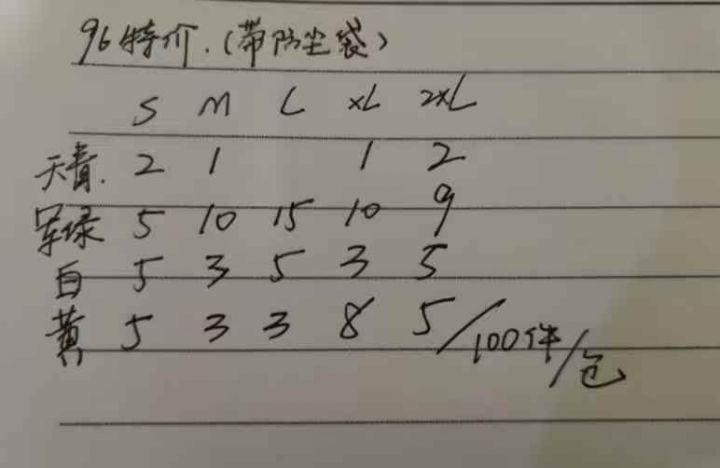 96特价.(带防尘袋)
S M L XL 2XL
天青. 2 1 1 2
军绿 5 10 15 10 9
白 5 3 5 3 5
黄 5 3 3 8 5/100件/包